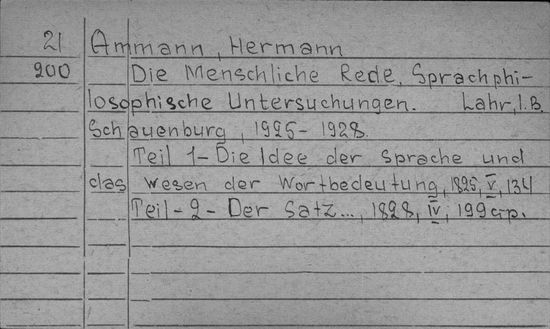 21 Ammann, Hermann
200 Die Menschliche Rede. Sprachphi-
losophische Untersuchungen. Lahr, I.B.
Schauenburg, 1925-1928.
Teil 1-Die Idee der Sprache und
das Wesen der Wortbedeutung, 1825, V, 134
Teil-2-Der Satz..., 1828, IV, 199 стр.